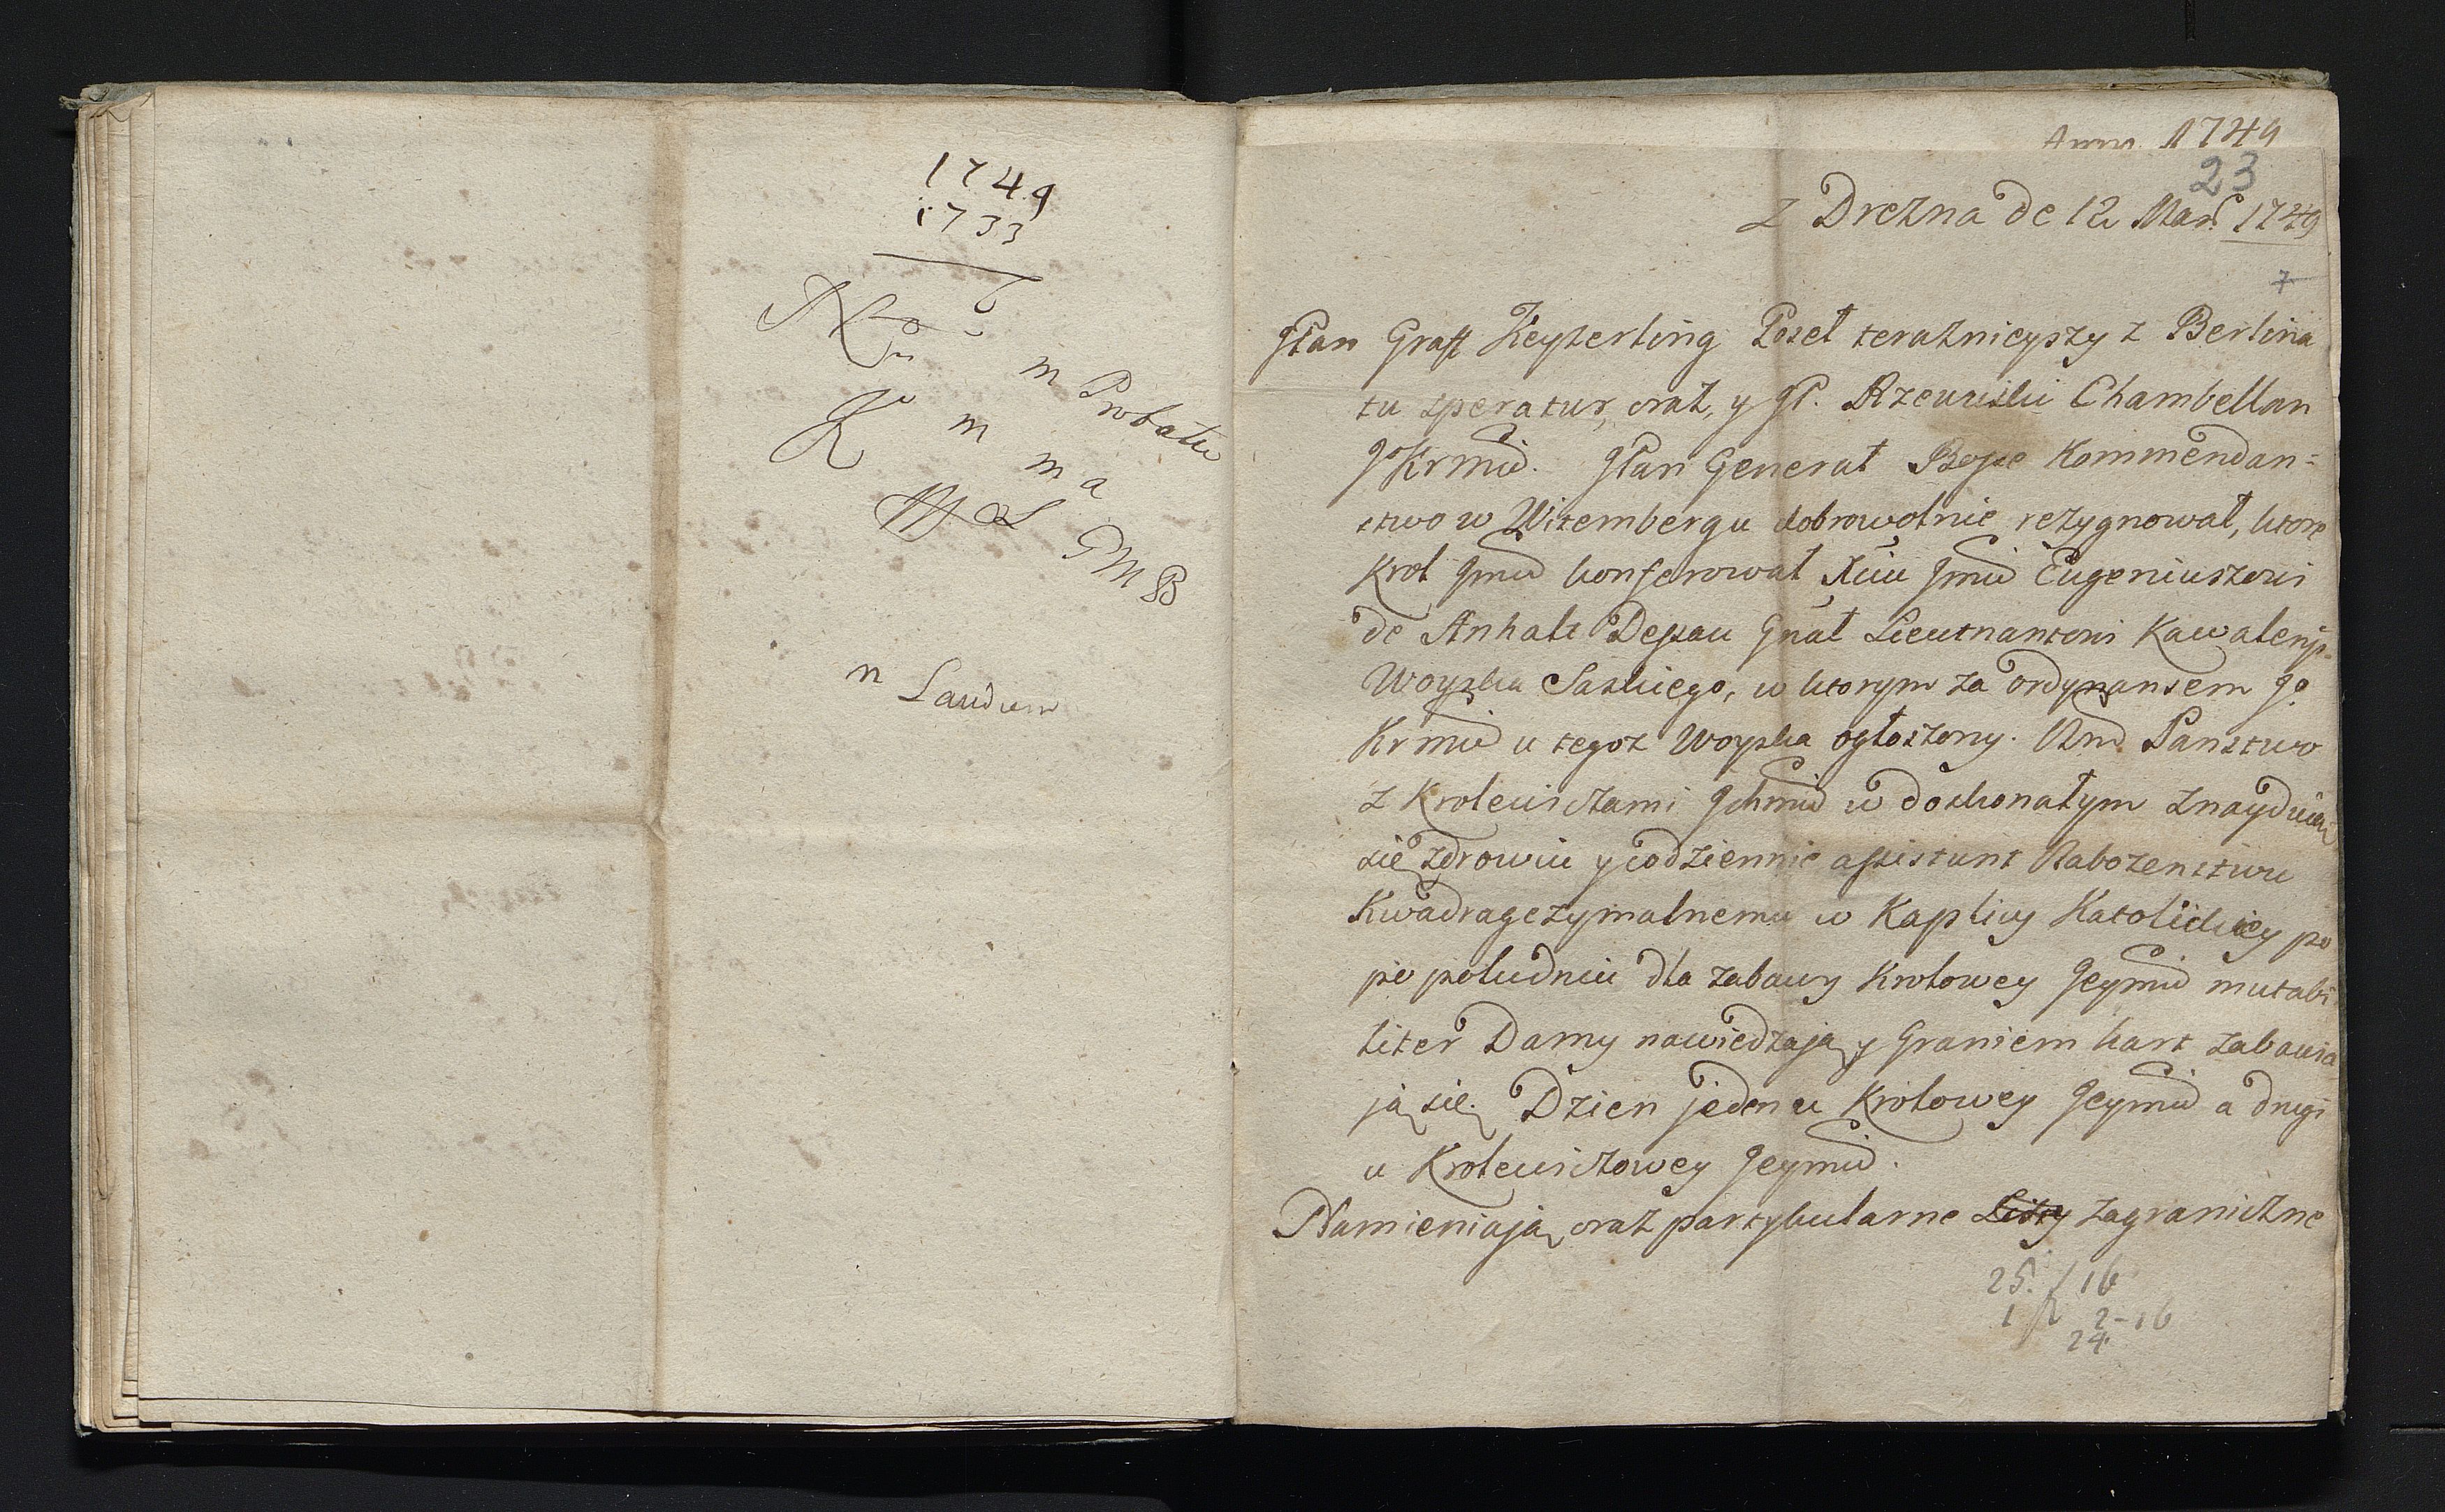 1749
1733
m Probatio
m
m a
G M B
n Laudum
Anno 1749
23
z Drezna de 12 Mar. 1749
7
JPan Graff Keyzerling Poseł teraznieyszy z Berlina
tu speratur, oraz, y JP. Rzewuski Chambellan
JoKrmci. JPan Generał Bose Kommendan=
stwo w Witembergu dobrowolnie rezygnował, ktore
Krol Jmć konferował Xciu Jmci Eugeniuszowi
de Anhalt Dessau Gnał Lieutnantowi Kawaleryi
Woyska Saskiego, w ktorym za ordynansem Jo
Krmci u tegoz Woyska ogłoszony. Panstwo
z Krolewiczami Jchmć w doskonałym znayduią
się zdrowiu y codziennie assistunt Nabozenstwu
Kwadragezymalnemu w Kaplicy Katolickiey po
po poludniu dla zabawy Krolowey Jeymci mutabi
liter Damy nawiedzaią y Graniem kart zabawia
ią się. Dzien jeden u Krolowey Jeymci a drugi
u Krolewiczowey Jeymci.
Namieniaią oraz partykularne Listy zagraniczne
25. / 16
1 2-16
24.